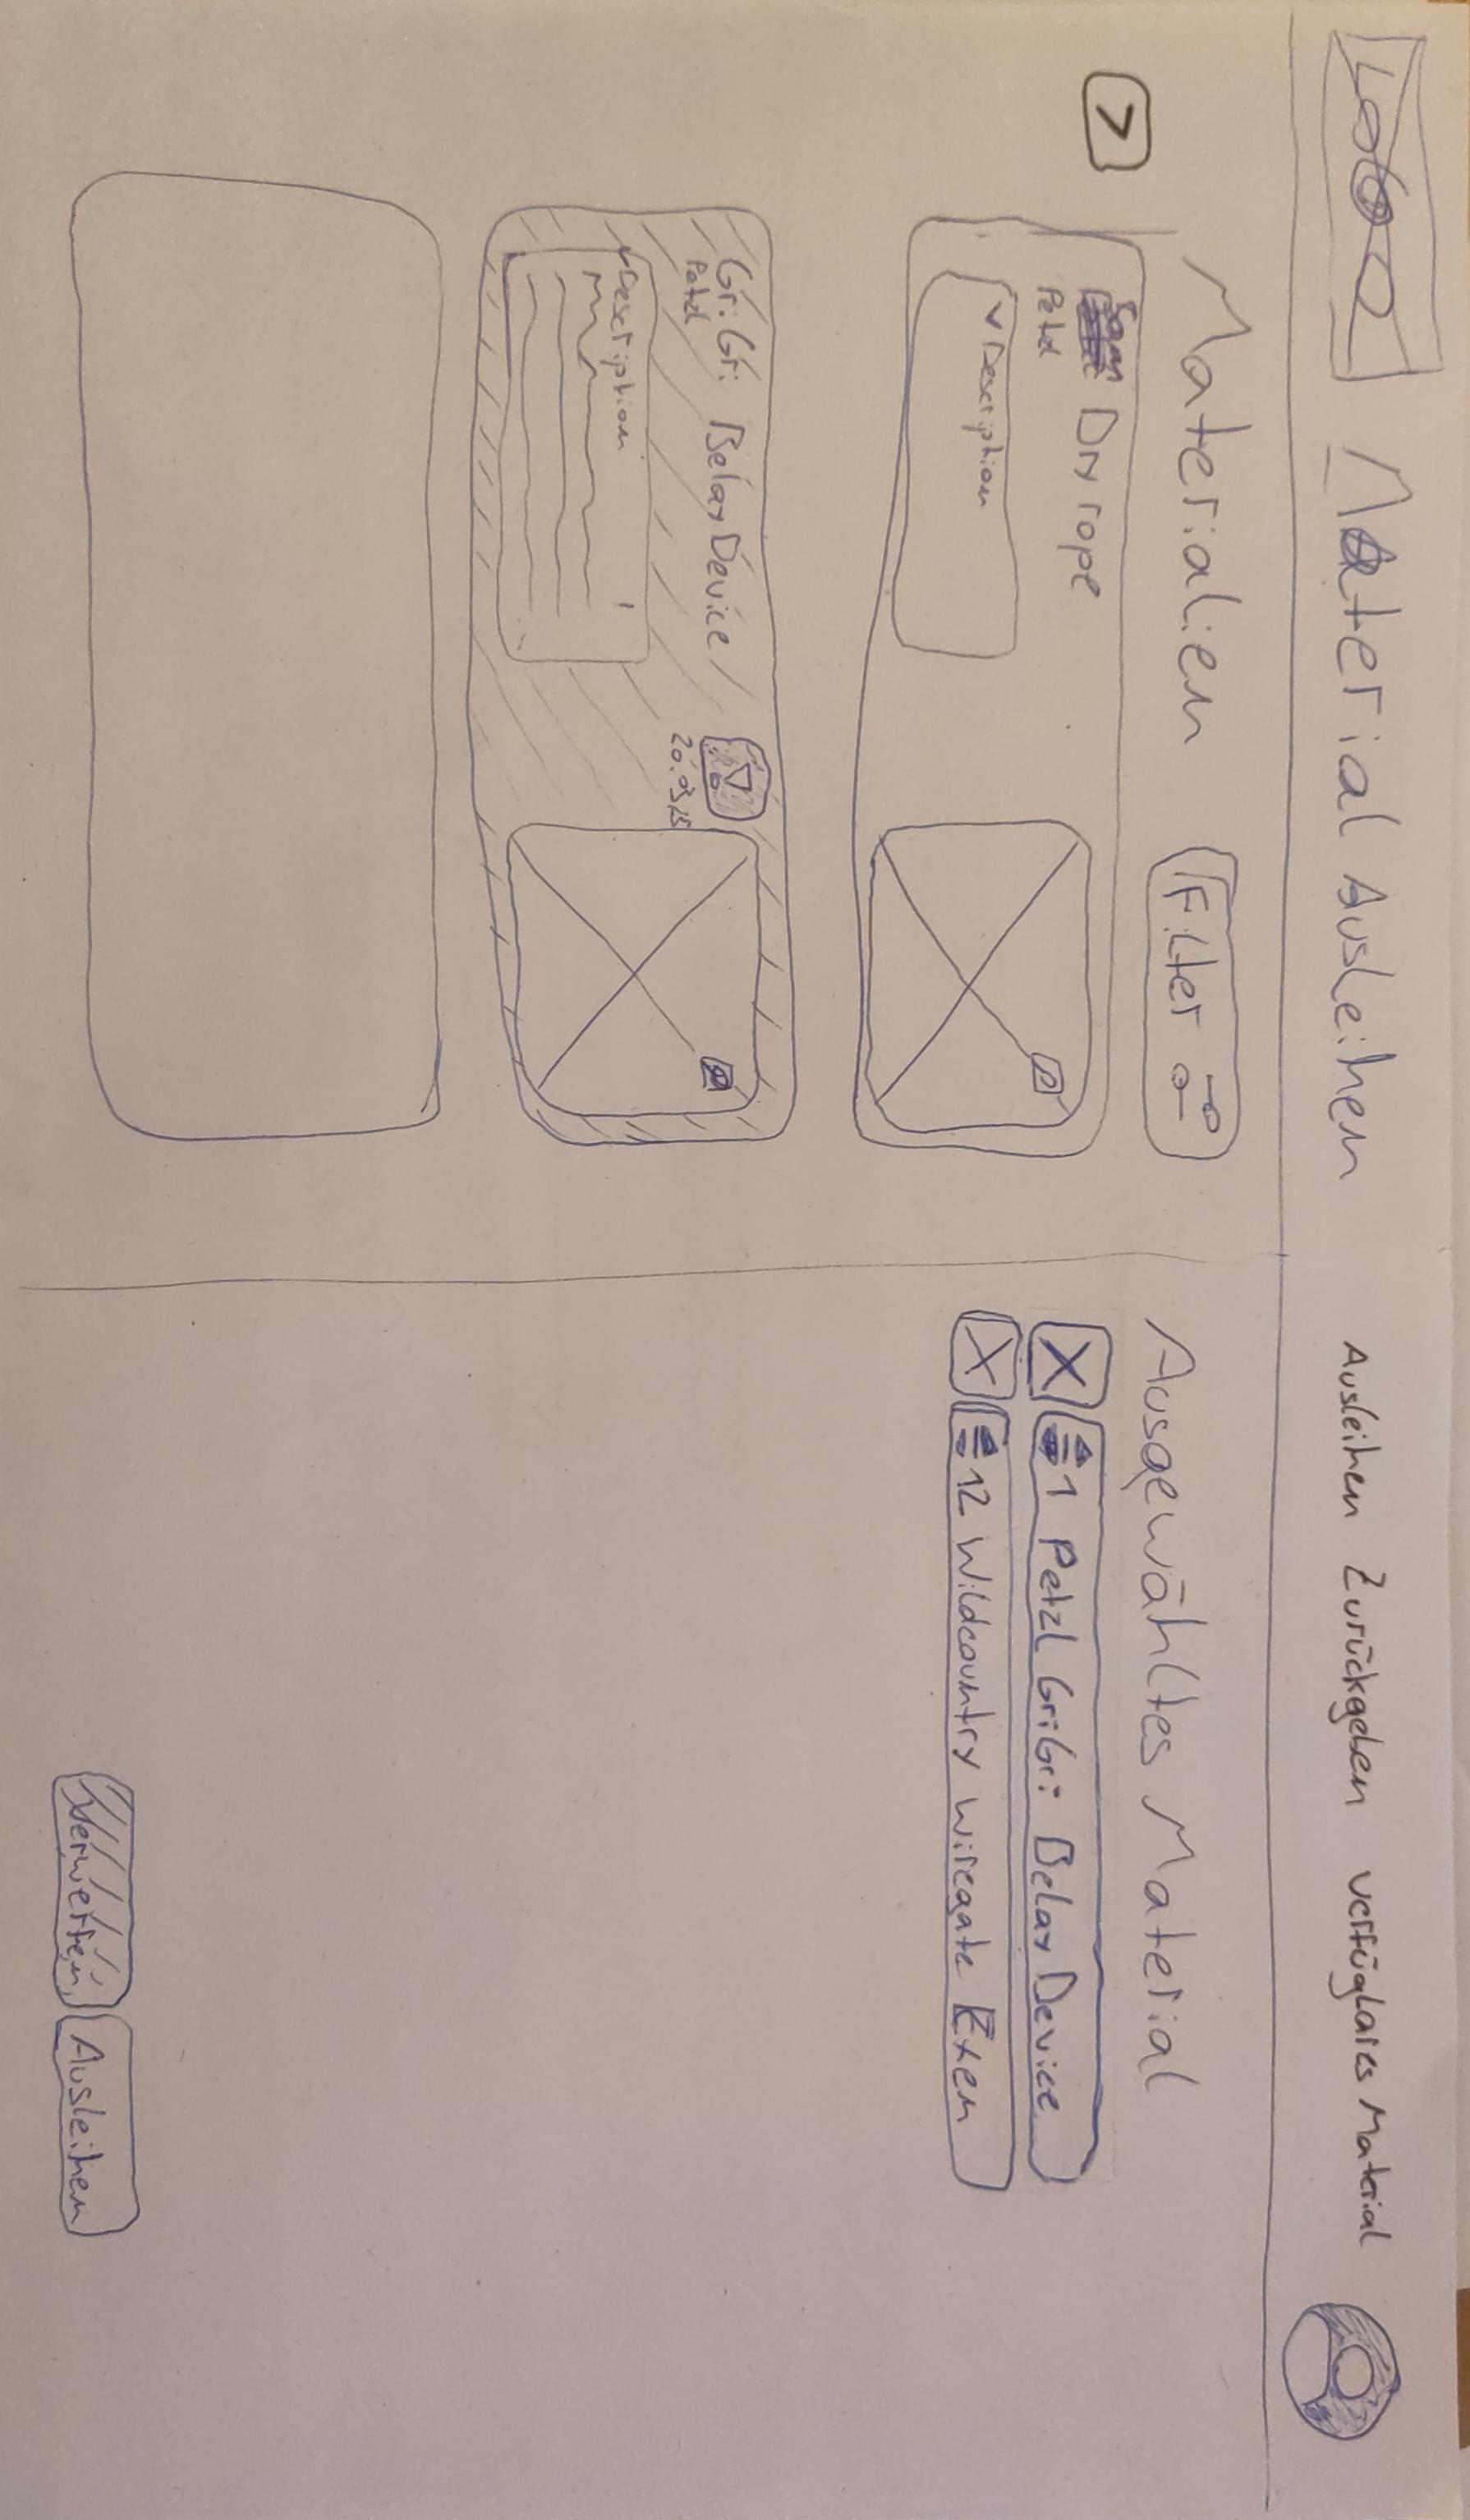 LOGO Material Ausleihen Ausleihen Zurückgeben verfüglares Material
Materialien Filter
>
Dry rope
Petzl
v Description
GriGri Belay Device
Petzl
20.03.25
v Description
Ausgewähltes Material
X 1 Petzl GriGri Belay Device
X 12 Wildcountry wiregate Exen
Verwerfen Ausleihen